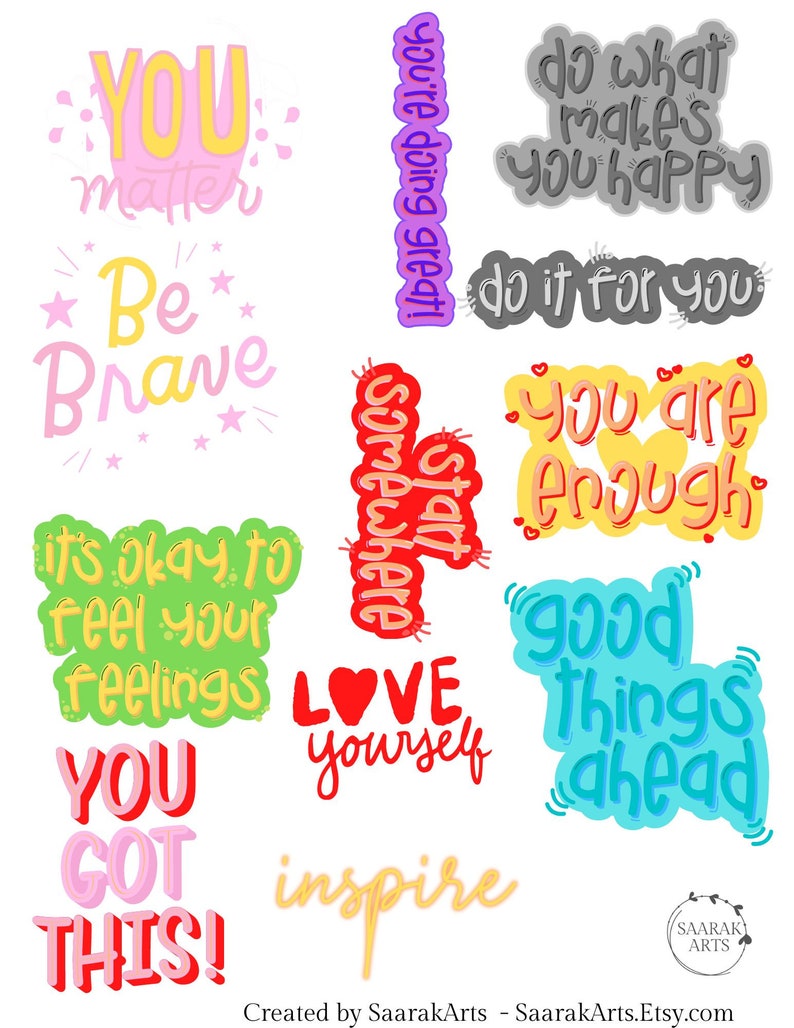 YOU
matter
you're doing great!
do what
makes
you happy
Be
Brave
do it for you
start
somewhere
you are
enough
it's okay to
feel your
feelings
good
things
ahead
LOVE
yourself
YOU
GOT
THIS!
inspire
SAARAK
ARTS
Created by SaarakArts - SaarakArts.Etsy.com